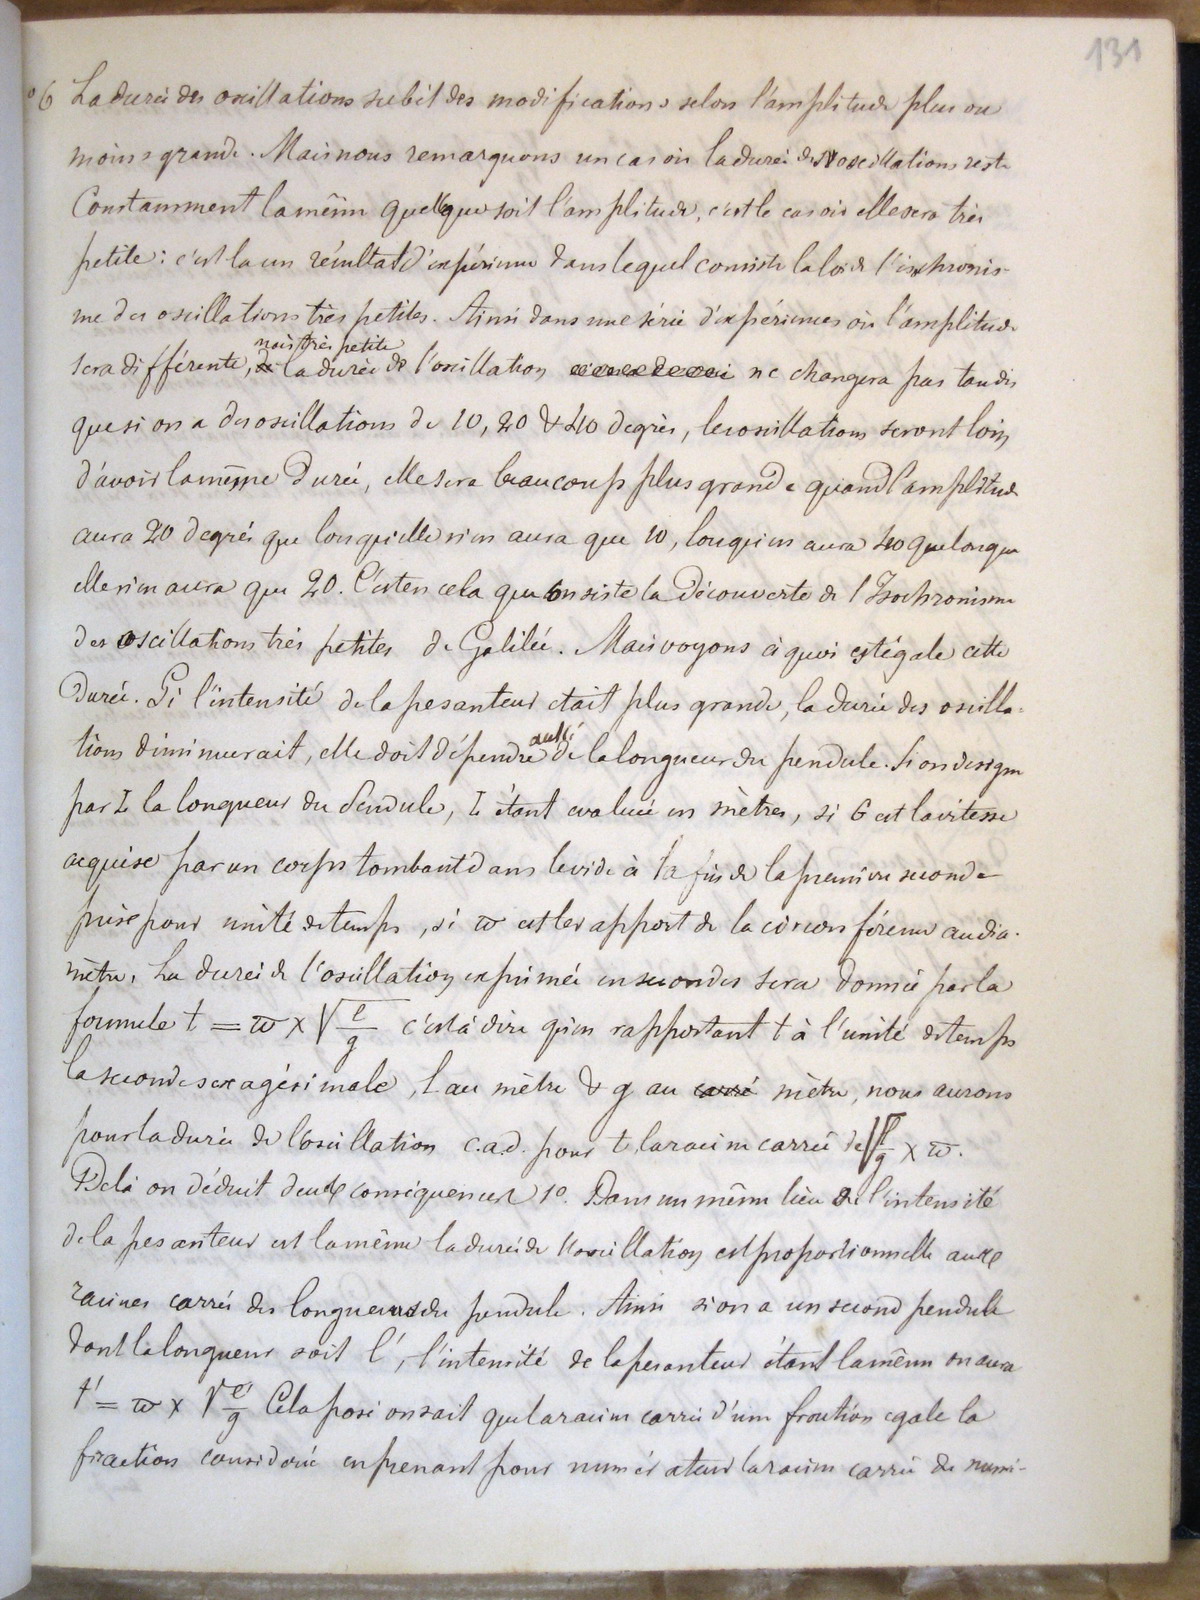 131
°6 La durée des oscillations subit des modifications selon l'amplitude plus ou
moins grande. Mais nous remarquons un cas où la durée des oscillations reste
Constamment la même quelque soit l'amplitude, c'est le cas où elle sera très
petite : c'est la un résultat d'expérience dans lequel consiste la loi de l'isochronis-
me des oscillations très petites. Ainsi dans une série d'expériences où l'amplitude
mais très petite
sera différente, la durée de l'oscillation ne changera pas tandis
que si on a des oscillations de 10, 20 & 40 degrés, les oscillations seront loin
d'avoir la même durée, elle sera beaucoup plus grande quand l'amplitude
aura 20 degrés que lorsqu'elle n'en aura que 10, lorsqu'on aura 40 que lorsque
elle n'en aura que 20. C'est en cela que consiste la Découverte de l'Isochronisme
des oscillations très petites de Galilée. Mais voyons à quoi est égale cette
Durée. Si l'intensité de la pesanteur était plus grande, la durée des oscilla-
aussi
tions diminuerait, elle doit dépendre de la longueur du pendule. Si on désigne
par L la longueur du Pendule, L étant evaluée en mètres, si G est la vitesse
acquise par un corps tombant dans le vide à la fin de la première seconde
prise pour unité de temps, si ϖ est le rapport de la circonférence au dia-
mètre, La durée de l'oscillation exprimée en secondes sera donnée par la
formule t = ϖ × √l/g c'est à dire qu'en rapportant t à l'unité de temps
la seconde sexagésimale, l au mètre & g au carré mètre, nous aurons
pour la durée de l'oscillation c.a.d. pour t, la racine carrée de √l/g × ϖ.
De là on déduit deux conséquences 1°. Dans un même lieu où l'intensité
de la pesanteur est la même la durée de l'oscillation est proportionnelle aux
racines carrées des longueurs du pendule. Ainsi si on a un second pendule
dont la longueur soit l', l'intensité de la pesanteur étant la même on aura
t' = ϖ × √l'/g Cela posé on sait que la racine carrée d'une fraction egale la
fraction considérée en prenant pour numérateur la racine carrée du numé-